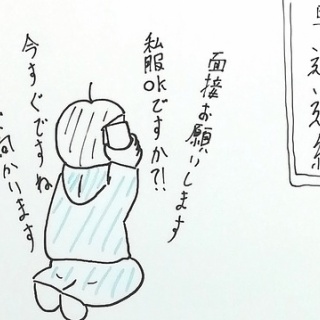 面接お願いします
私服OKですか?!
今すぐですね
向かいます